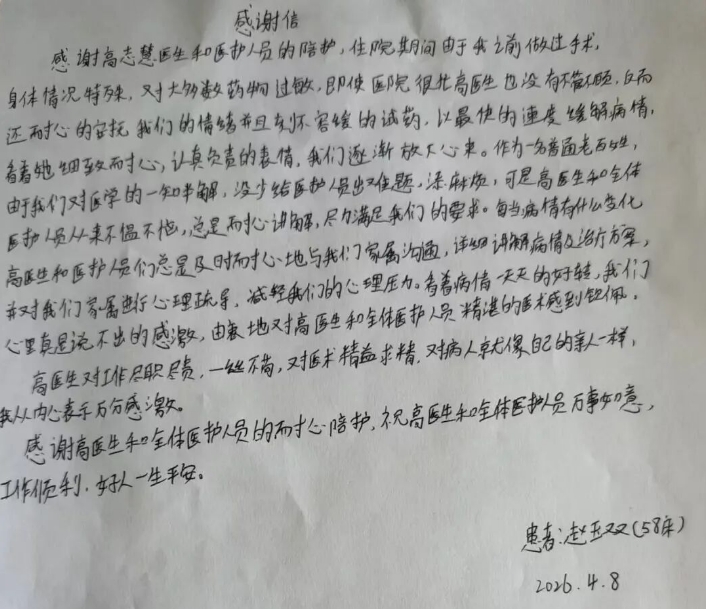 感谢信
感谢高志慧医生和医护人员的陪护，住院期间由于我之前做过手术，
身体情况特殊，对大多数药物过敏，即使医院很忙高医生也没有不耐烦，反而
还耐心的安抚我们的情绪并且刻不容缓的试药，以最快的速度缓解病情，
看着她细致耐心，认真负责的表情，我们逐渐放下心来。作为一名普通老百姓，
由于我们对医学的一知半解，没少给医护人员出难题，添麻烦，可是高医生和全体
医护人员从来不愠不恼，总是耐心讲解，尽力满足我们的要求。每当病情有什么变化
高医生和医护人员们总是及时耐心地与我们家属沟通，详细讲解病情及治疗方案，
并对我们家属进行心理疏导，减轻我们的心理压力。看着病情一天天的好转，我们
心里真是说不出的感激，由衷地对高医生和全体医护人员精湛的医术感到钦佩。
高医生对工作尽职尽责，一丝不苟，对医术精益求精，对病人就像自己的亲人一样，
我从内心表示万分感激。
感谢高医生和全体医护人员的耐心陪护，祝高医生和全体医护人员万事如意，
工作顺利，好人一生平安。
患者：赵玉双（58床）
2026.4.8